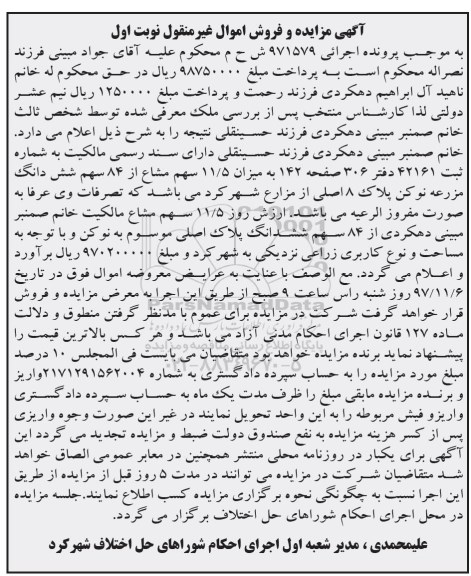 آگهی مزایده و فروش اموال غیرمنقول نوبت اول
به موجب پرونده اجرائی ۹۷۱۵۷۹ ش ح م محکوم علیه آقای جواد مبینی فرزند
نصراله محکوم است به پرداخت مبلغ ۹۸۷۵۰۰۰۰ ریال در حق محکوم له خانم
ناهید آل ابراهیم دهکردی فرزند رحمت و پرداخت مبلغ ۱۲۵۰۰۰۰ ریال نیم عشر
دولتی لذا کارشناس منتخب پس از بررسی ملک معرفی شده توسط شخص ثالث
خانم صمنبر مبینی دهکردی فرزند حسینقلی نتیجه را به شرح ذیل اعلام می دارد.
خانم صمنبر مبینی دهکردی فرزند حسینقلی دارای سند رسمی مالکیت به شماره
ثبت ۴۲۱۶۱ دفتر ۳۰۶ صفحه ۱۴۲ به میزان ۱۱/۵ سهم مشاع از ۸۴ سهم شش دانگ
مزرعه نوکن پلاک ۸ اصلی از مزارع شهرکرد می باشد که تصرفات وی عرفا به
صورت مفروز الرعیه می باشد. ارزش روز ۱۱/۵ سهم مشاع مالکیت خانم صمنبر
مبینی دهکردی از ۸۴ سهم ششدانگ پلاک اصلی موسوم به نوکن و با توجه به
مساحت و نوع کاربری زراعی نزدیکی به شهرکرد و مبلغ ۹۷۰۲۰۰۰۰۰ ریال برآورد
و اعلام می گردد. مع الوصف با عنایت به عرایض معروضه اموال فوق در تاریخ
۹۷/۱۱/۶ روز شنبه راس ساعت ۹ صبح از طریق این اجرا به معرض مزایده و فروش
قرار خواهد گرفت شرکت در مزایده برای عموم با مدنظر گرفتن منطوق و دلالت
ماده ۱۲۷ قانون اجرای احکام مدنی آزاد می باشد و هر کس بالاترین قیمت را
پیشنهاد نماید برنده مزایده خواهد بود متقاضیان می بایست فی المجلس ۱۰ درصد
مبلغ مورد مزایده را به حساب سپرده دادگستری به شماره ۲۱۷۱۲۹۱۵۶۲۰۰۴واریز
و برنده مزایده مابقی مبلغ را ظرف مدت یک ماه به حساب سپرده دادگستری
واریزو فیش مربوطه را به این واحد تحویل نمایند در غیر این صورت وجوه واریزی
پس از کسر هزینه مزایده به نفع صندوق دولت ضبط و مزایده تجدید می گردد این
آگهی برای یکبار در روزنامه محلی منتشر همچنین در معابر عمومی الصاق خواهد
شد متقاضیان شرکت در مزایده می توانند در مدت ۵ روز قبل از مزایده از طریق
این اجرا نسبت به چگونگی نحوه برگزاری مزایده کسب اطلاع نمایند.جلسه مزایده
در محل اجرای احکام شوراهای حل اختلاف برگزار می گردد.
علیمحمدی ، مدیر شعبه اول اجرای احکام شوراهای حل اختلاف شهرکرد